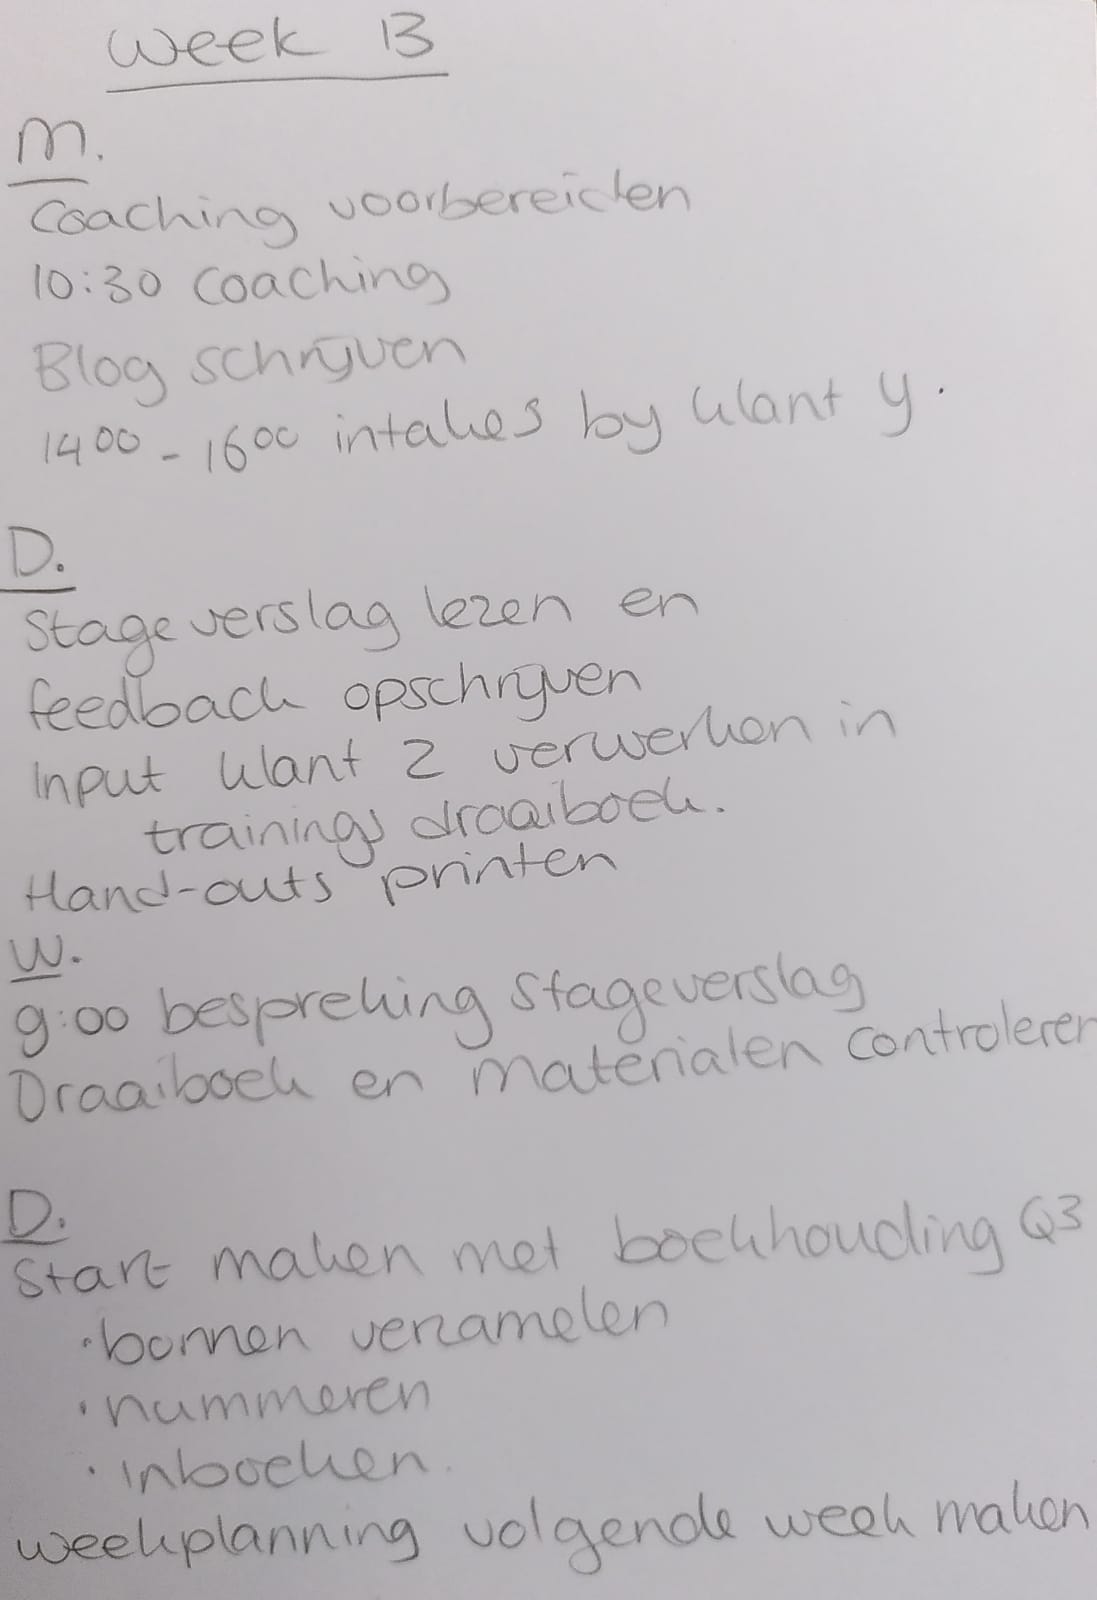 Week 13
M.
Coaching voorbereiden
10:30 Coaching
Blog schrijven
14 00 - 16 00 intakes bij klant y.
D.
Stageverslag lezen en
feedback opschrijven
Input klant 2 verwerken in
trainings draaiboek.
Hand-outs printen
W.
9:00 bespreking Stageverslag
Draaiboek en materialen controleren
D.
Start maken met boekhouding Q3
• bonnen verzamelen
• nummeren
• inboeken.
weekplanning volgende week maken